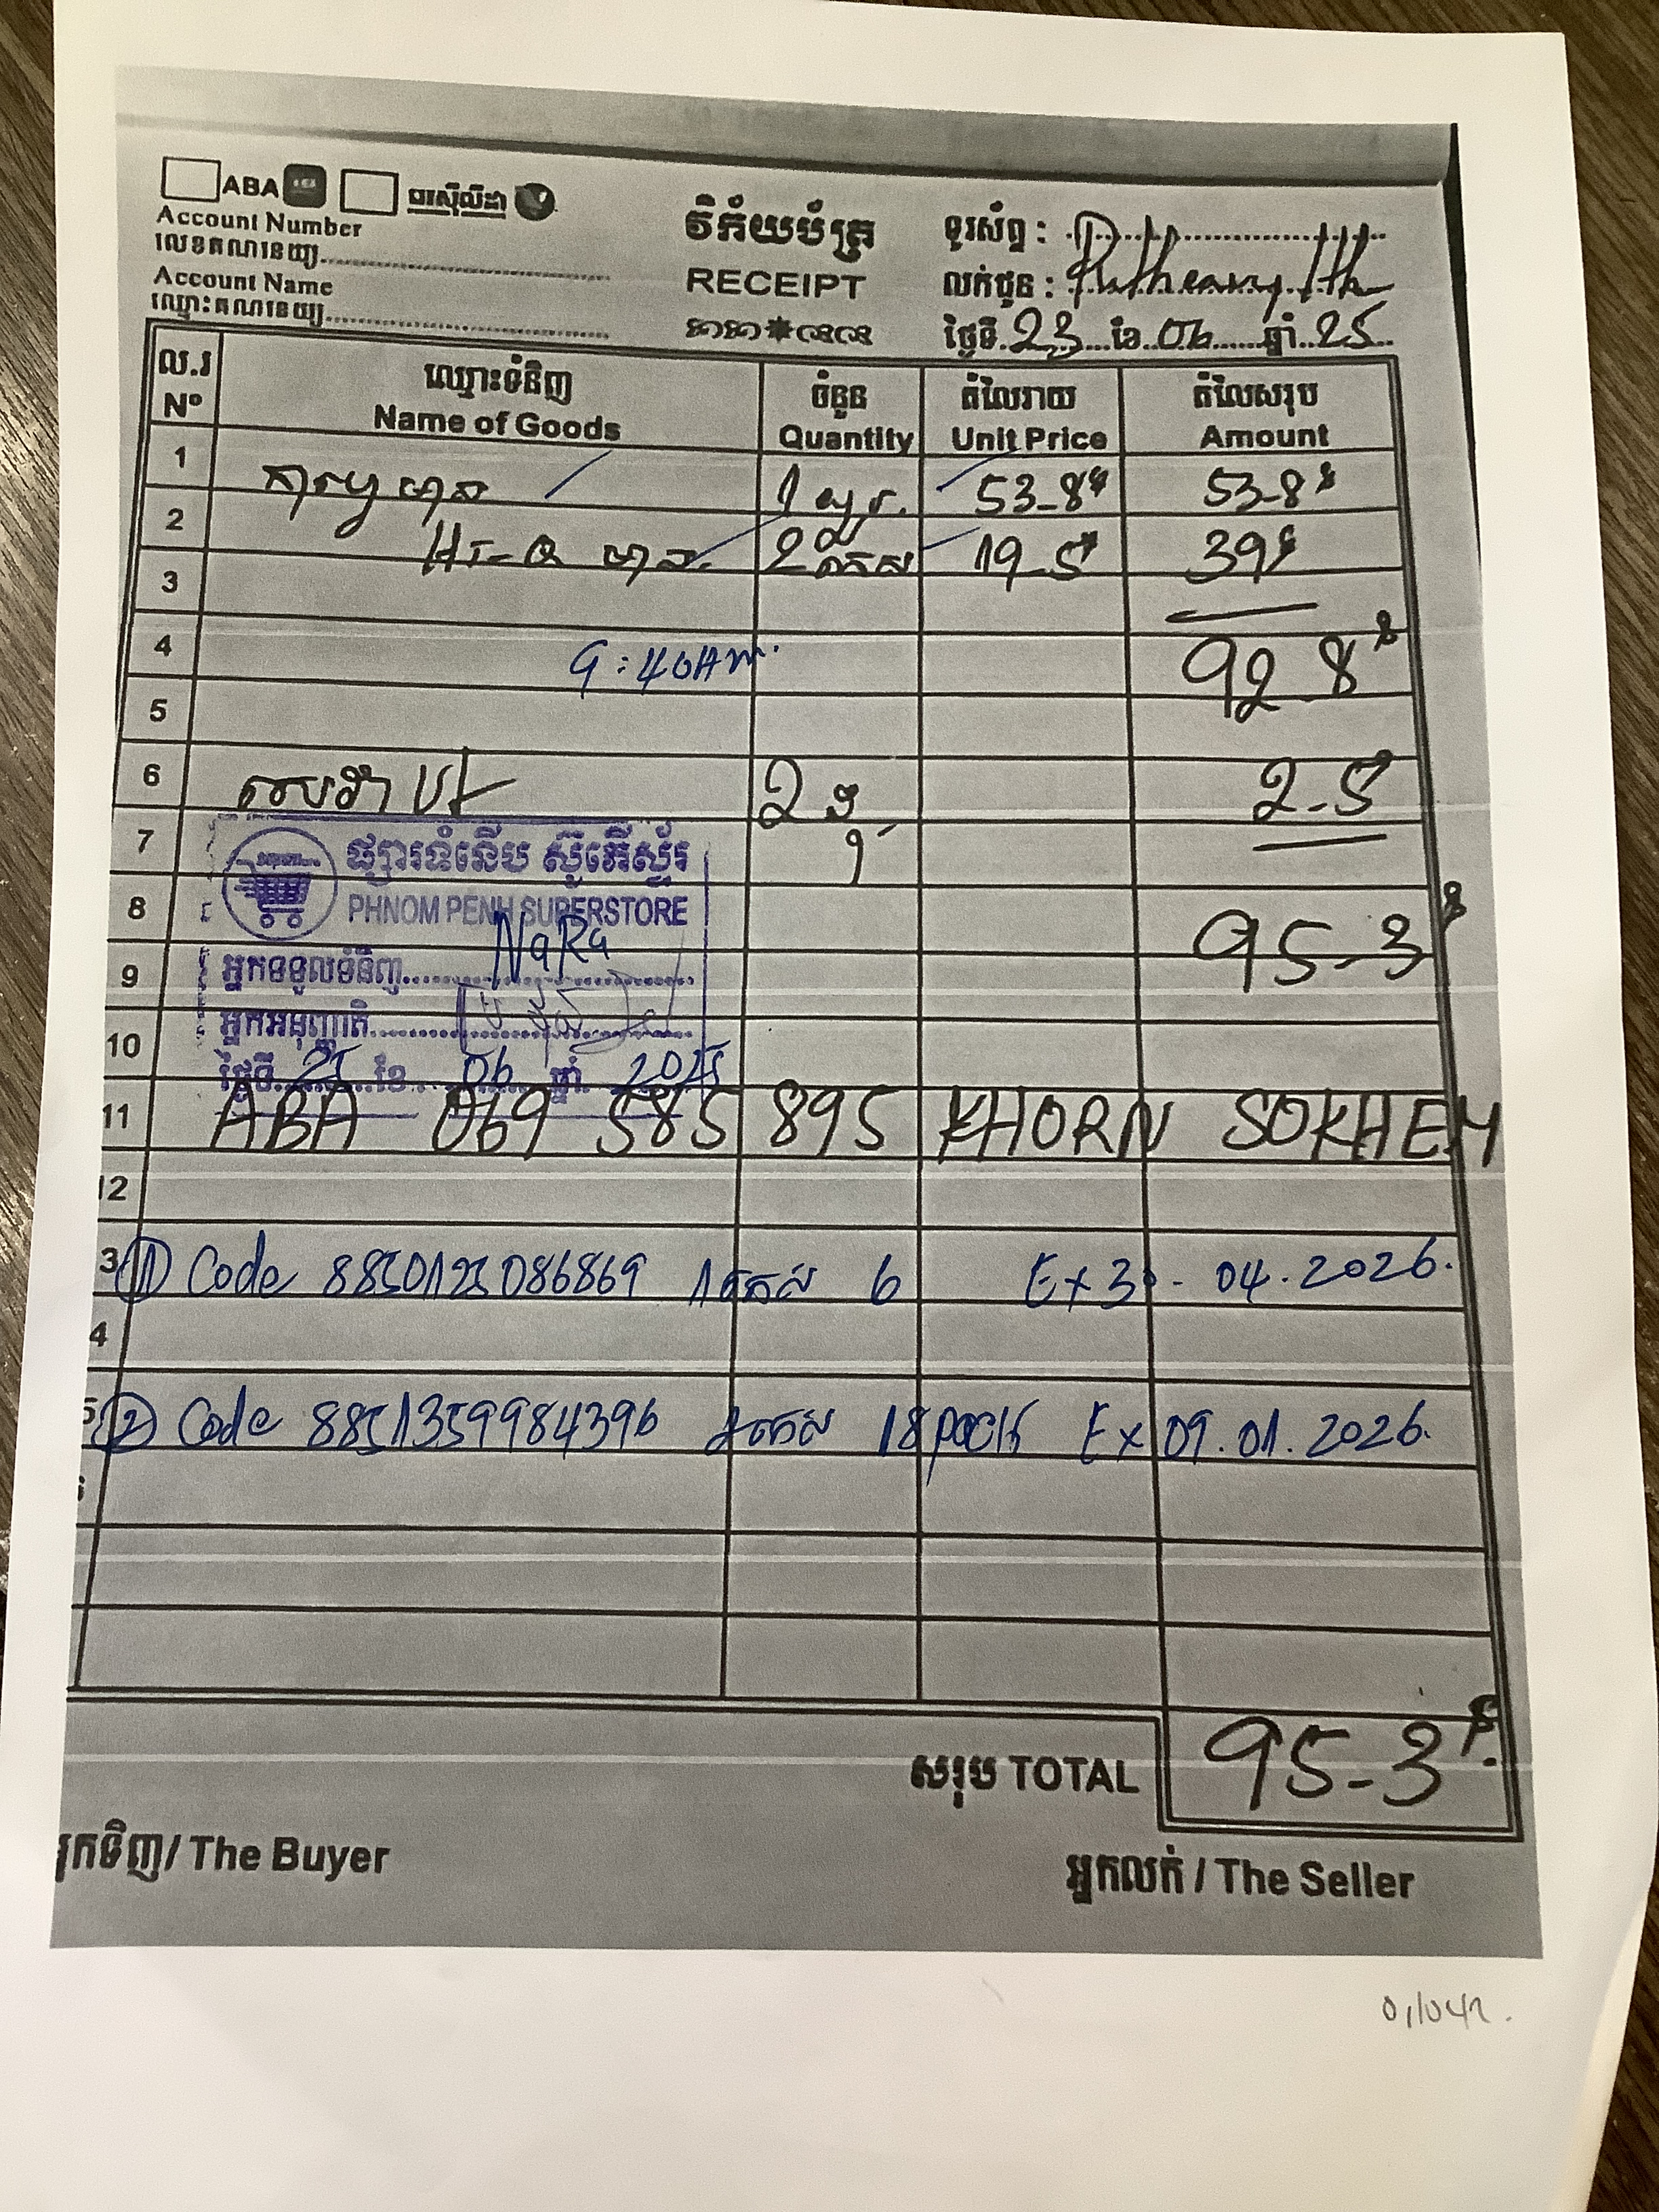 ABA
Account Number
លេខគណនេយ្យ
Account Name
ឈ្មោះគណនេយ្យ
វិក័យប័ត្រ
RECEIPT
ទូរស័ព្ទ :
លក់ជូន : Putheavy Ith
ថ្ងៃទី 23 ខែ 06 ឆ្នាំ 25
ល.រ ឈ្មោះទំនិញ ចំនួន តំលៃរាយ តំលៃសរុប
Nº Name of Goods Quantity Unit Price Amount
1 53-8$ 53-8$
2 Hi-Q 2 19-5$ 39$
3
4 9:40AM. 92-8$
5
6 2 2-5
7
ផ្សារទំនើប ស៊ូភើស្ទ័រ
PHNOM PENH SUPERSTORE
8 95-3$
9 អ្នកទទួលទំនិញ NaRa
អ្នកអនុញ្ញាតិ
10
ថ្ងៃទី 25 ខែ 06 ឆ្នាំ 2025
11 ABA 069 585 895 KHORN SOKHEM
12
3 (1) Code 8850125086869 1កេស 6 Ex 30-04.2026.
4
5 (2) Code 8851359984396 2កេស 18pack Ex 09.01.2026.
សរុប TOTAL 95-3$
អ្នកទិញ/ The Buyer
អ្នកលក់ / The Seller